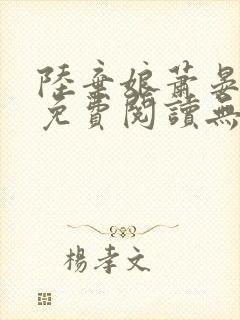 陸棄娘蕭晏
免費閱讀無
楊孝文